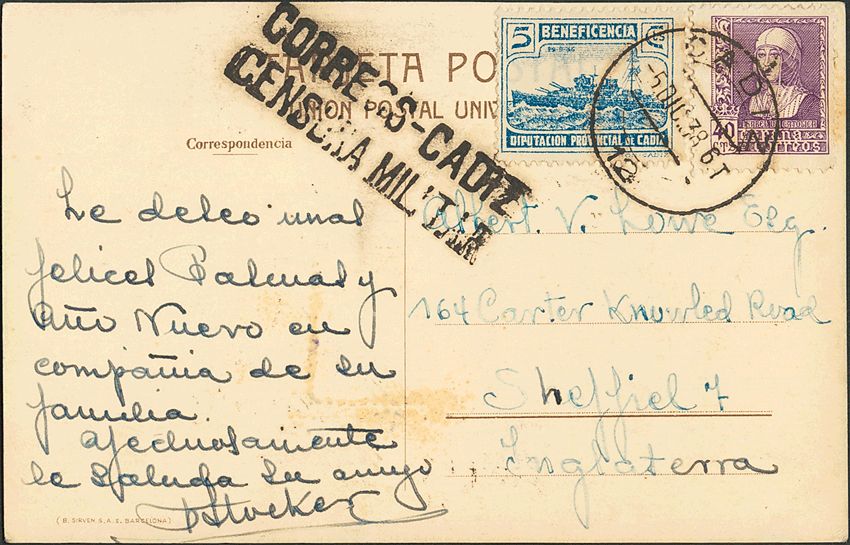 TARJETA POSTAL
UNION POSTAL UNIV
Correspondencia
CORREOS-CADIZ
CENSURA MILITAR
5 BENEFICENCIA Cs
DIPUTACION PROVINCIAL DE CADIZ
40
CTS
CORREOS
CADIZ
-5 DIC.38.6T
12
Le deseo unas
felices Pascuas y
año Nuevo en
compañia de su
familia.
afectuosamente
le saluda su amigo
DStocker
Albert. V. Lowe Esq.
164 Carter Knowled Road
Sheffiel 7
Inglaterra
(B. SIRVEN S.A.E. BARCELONA)